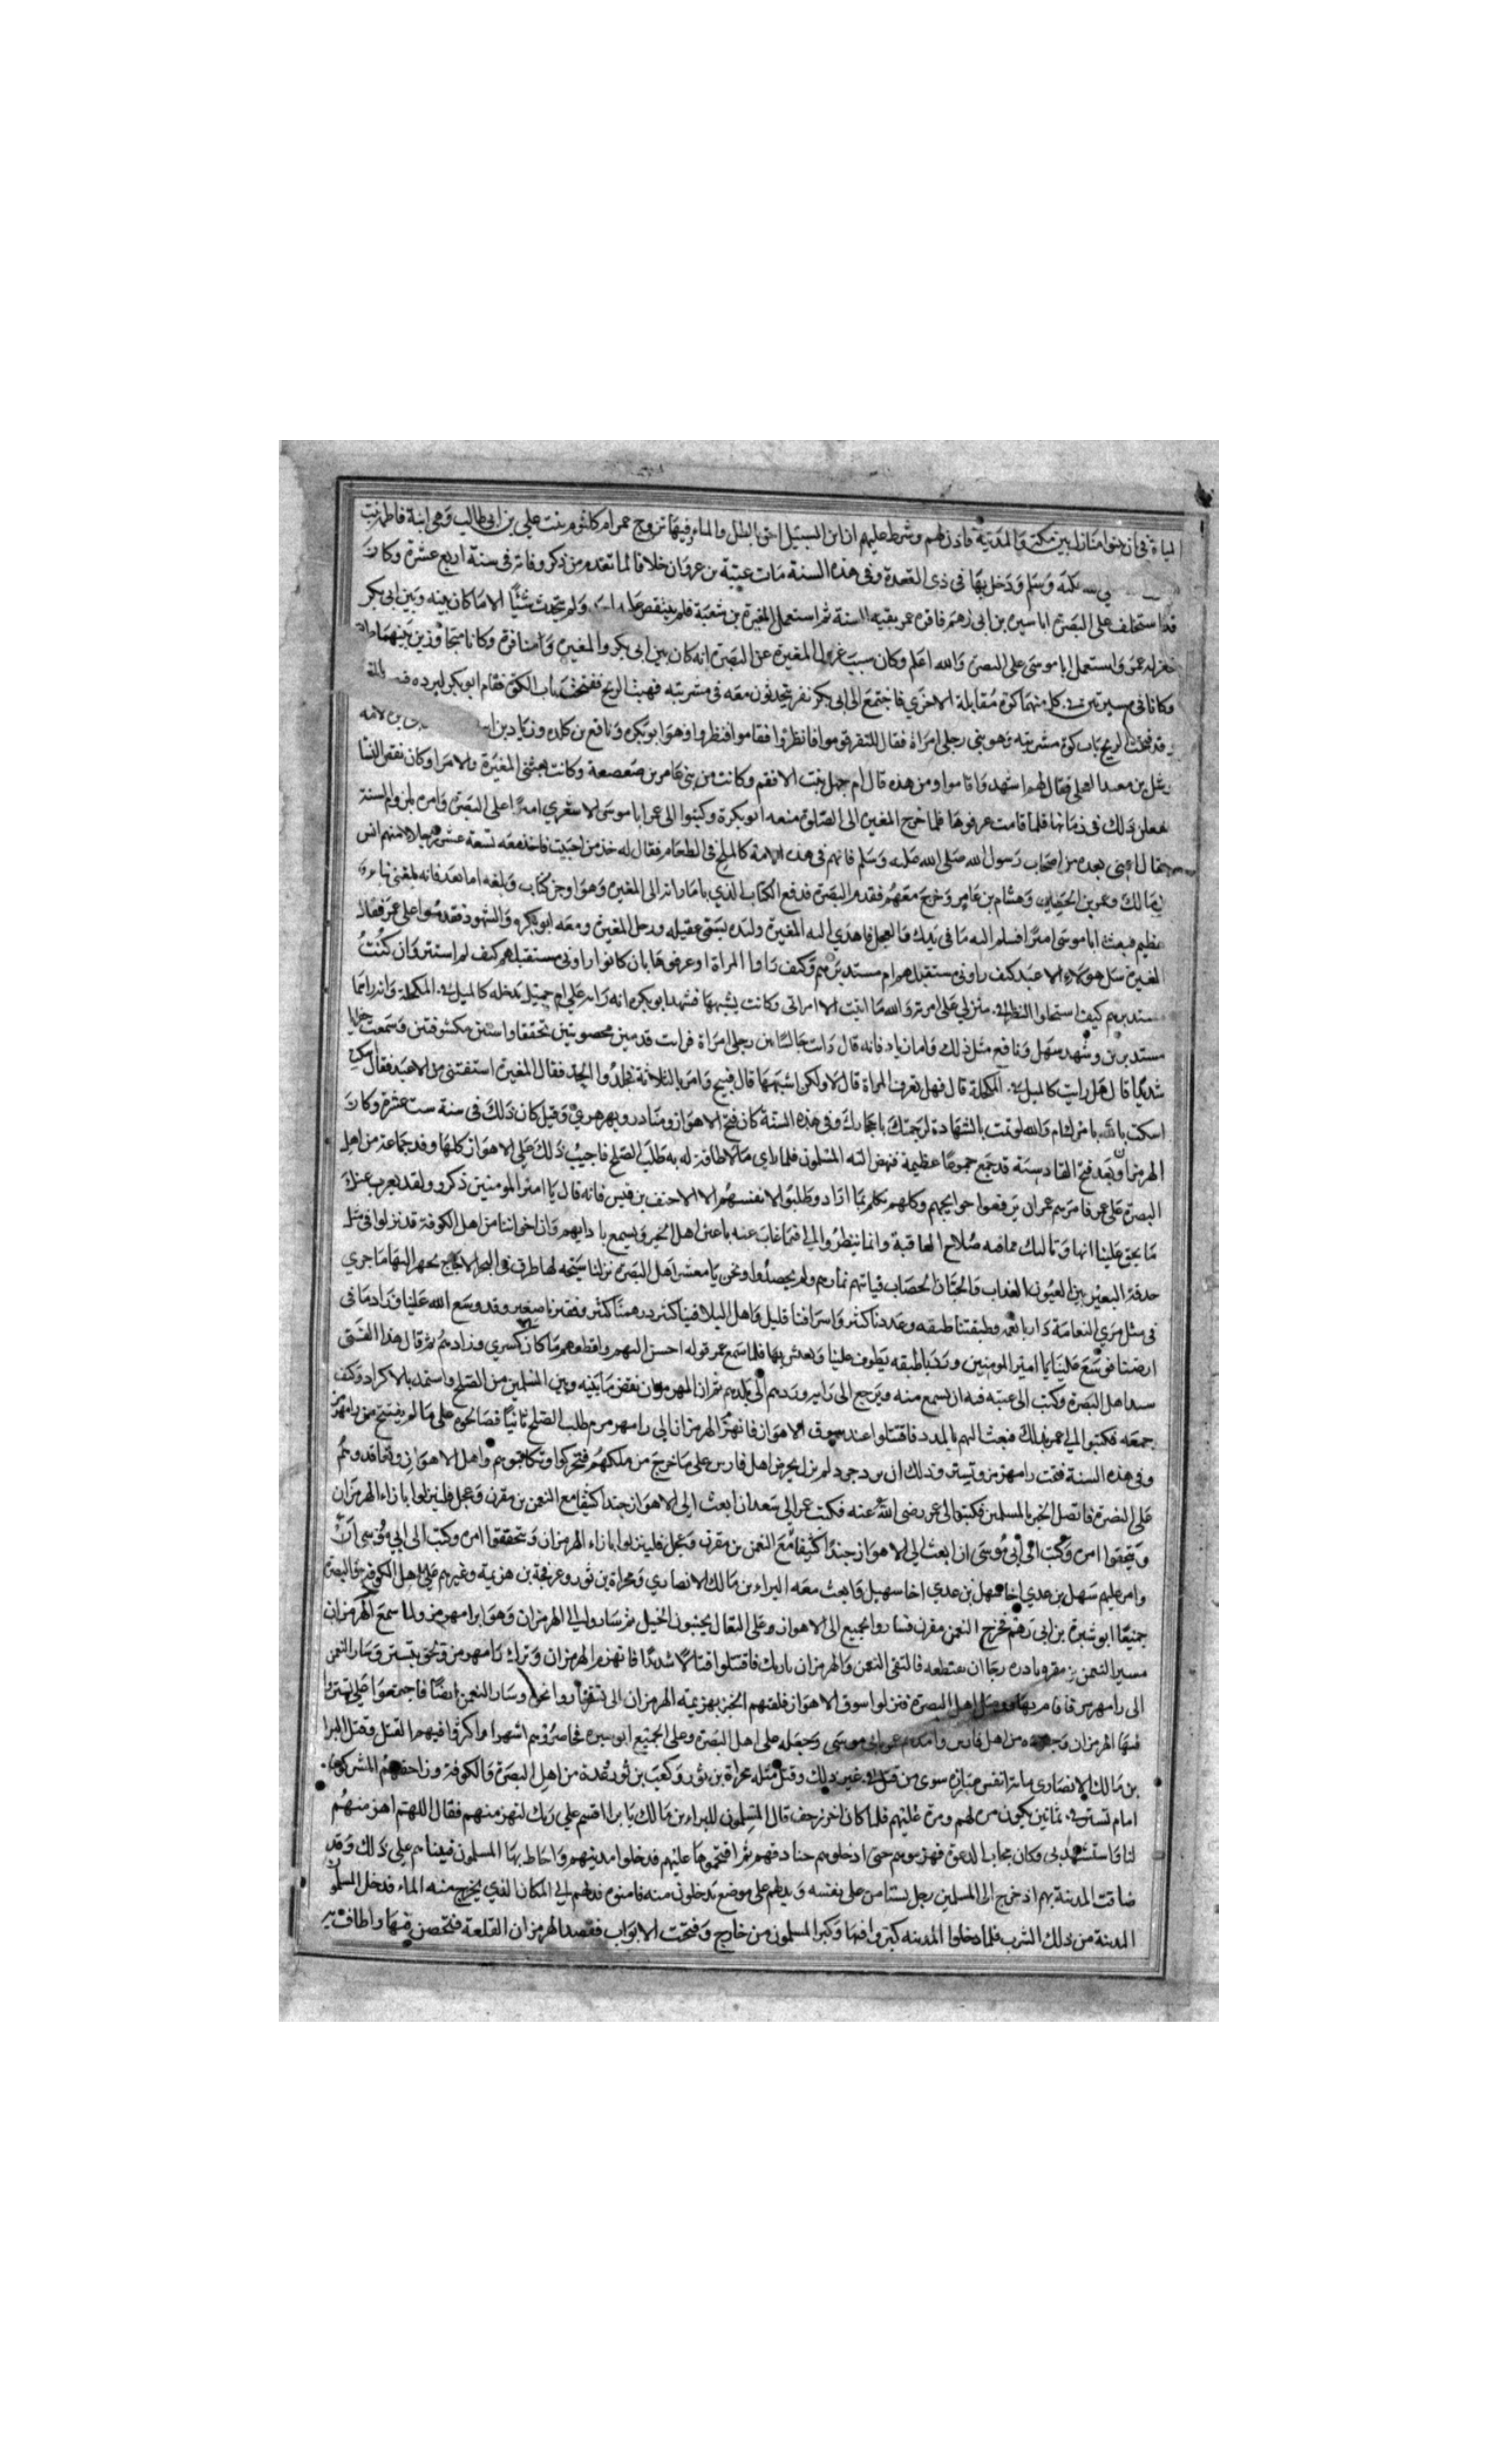 المياة في ان يبنوا منازل بين مكة والمدينة فاذن لهم وشرط عليهم ان ابن السبيل احق بالظل والماء وفيها تزوج عمر ام كلثوم بنت علي بن ابي طالب وهي ابنة فاطمة بنت
وسلم ودخل بها في ذي القعدة وفي هذه السنة مات عتبة بن غزوان خلافا لما تقدم من ذكر وفاته في سنة اربع عشرة وكان
قد استخلف على البصرة ابا سبره بن ابي رهم فاقره عمر بقيه السنة ثم استعمل المغيرة بن شعبة فلم ينتقض عليه ولم يحدث شيئا الا ما كان بينه وبين ابي بكر
فعزله عمر واستعمل ابا موسى على البصرة والله اعلم وكان سبب عزل المغيرة عن البصرة انه كان بين ابي بكر والمغيره منافرة وكانا متجاورين بينهما
وكانا في مشربتين في كل منهما كوة مقابلة الاخري فاجتمع الى ابي بكر نفر يتحدثون معه في مشربته فهبت الريح ففتحت باب الكوة فقام ابو بكر ليرده
قد فتحت الريح باب كوة مشربته وهو بين رجلي امراة فقال للنفر قوموا فانظروا فقاموا فنظروا وهو ابو بكره ونافع بن كلده وزياد بن
وشبل بن معبد البجلي فقال لهم اشهدوا قالوا ومن هذه قال ام جميل بنت الافقم وكانت من بني عامر بن صعصعة وكانت تغشى المغيرة والامرا وكان بعض النسا
يفعلن ذلك في زمانها فلما قامت عرفوها فلما خرج المغيره الى الصلوة منعه ابو بكرة وكتبوا الى عمر ابا موسى الاشعري اميرا على البصرة وامره بلزوم السنة
فقال اعني بعده من اصحاب رسول الله صلى الله عليه وسلم فانهم في هذه الامة كالملح في الطعام فقال له خذ من احببت فاخذ معه تسعة عشر رجلا منهم انس
بن مالك وعمرن بن الحصين وهشام بن عامر وخرج معهم فقدم البصرة فدفع الكتاب الذي بامارته الى المغيره وهو اوجز كتاب وبلغه اما بعد فانه بلغني نبا
عظيم فبعثت ابا موسى اميرا فسلم اليه ما في يديك والعجل فاهدي اليه المغيرة وليده تسمى عقيله ورحل المغيرة ومعه ابو بكره والشهود فقدموا على عمر فقال
المغيرة سل هولاء الاعبد كيف راوني مستقبلهم ام مستدبرهم وكيف راوا المراة او عرفوها بان كانوا راوني مستقبلهم كيف لم استتر وان كنت
مستدبرهم كيف استحلوا النظر الي في منزلي على امرتي والله ما اتيت الا امراتي وكانت يشبهها فشهد ابو بكره انه راه على ام جميل يدخله كالميل في المكحلة وانه راهما
مستدبرين وشهد سهل ونافع مثل ذلك واما زياد فانه قال رايته جالسا بين رجلي امراة فرايت قدمين مخضوبتين تخفقان واستين مكشوفتين وسمعت
شديدا قال هل رايت كالميل في المكحلة قال فهل تعرف المراة قال لا ولكن اشبهها قال فتنح وامر بالثلاثة فجلدوا الحد فقال المغيرة استفتني من الاعبد فقال
اسكت والله لو تمت بالشهادة لرجمتك باحجارك وفي هذه السنة كان فتح الاهواز ومناذر ونهر تيري وقيل كان ذلك في سنة ست عشرة وكان
الهرمزان بعد فتح القادسية قد جمع جموعا عظيمة فنهض اليه المسلمون فلما راي ما لا طاقة له به طلب الصلح فاجيب ذلك على الاهواز كلها ووفد جماعة من اهل
البصرة على عمر فامرهم عمر ان يرفعوا حوايجهم وكلهم تكلم بما اراد وطلبوا لانفسهم الا الاحنف بن قيس فانه قال يا امير المومنين ذكروا ولقد يعزب عنك
ما يحق علينا انهاوه اليك مما فيه صلاح العاقبة وانما ينظر الوالي فيما غاب عنه باعين اهل الخير ويسمع باذانهم وان اخواننا من اهل الكوفة قد نزلوا في مثل
حدقة البعير بين العيون العذاب والجنان الخصاب فياتيهم ثمارهم ولم يحصدوا ونحن يا معشر اهل البصرة نزلنا سبخة لها طرف في البحر الاجاج يجري اليها ما جري
في مثل مري النعامة وطبقتنا طبقه وعددنا كثير واشرافنا قليل واهل البلا فينا كثير درهمنا كثير وقفيزنا صغير وقد وسع الله علينا وزادنا في
ارضنا فوسع علينا يا امير المومنين وزدنا طبقه يطوف علينا ونعيش بها فلما سمع عمر قوله احسن اليهم واقطعهم ما كان لكسري وزادهم ثم قال هذا الفتى
سيد اهل البصرة وكتب الى عتبه فيه ان يسمع منه ويرجع الى رايه وردهم الى بلدهم ثم ان الهرمزان نقض ما بينه وبين المسلمين من الصلح واستمد بالاكراد وكثف
جمعه فكتبوا الى عمر بذلك فبعث اليهم بالمدد فاقتتلوا عند سوق الاهواز فانهزم الهرمزان الى رامهرمز ثم طلب الصلح ثانيا فصالحوه على ما لم يفتتح من رامهرمز
وفي هذه السنة فتحت رامهرمز وتستر وذلك ان يزدجرد لم يزل يحرض اهل فارس على ما خرج من ملكهم فتحركوا وتكاتبوا هم واهل الاهواز وتعاقدوا هم
على النصرة فاتصل الخبر بالمسلمين فكتبوا الى عمر رضى الله عنه فكتب عمر الى سعد ان ابعث الى الاهواز جندا كثيفا مع النعمن بن مقرن وعجل فلينزلوا بازاء الهرمزان
ويتحققوا امره وكتب الى ابي موسى ان ابعث الى الاهواز جندا كثيفا مع النعمن بن مقرن وعجل فلينزلوا بازاء الهرمزان ويتحققوا امره وكتب الى ابي موسى ان
وامر عليهم سهل بن عدي اخا سهيل بن عدي اخا سهيل وابعث معه البراء بن مالك الانصاري ومجزاة بن ثور وعرفجة بن هزيمة وغيرهم وعلى اهل الكوفة والبصرة
جميعا ابو سبرة بن ابي رهم فخرج النعمن بن مقرن فساروا الجميع الى الاهواز وعلى البغال يجنبون الخيل ثم ساروا الى الهرمزان وهو برامهرمز ولما سمع الهرمزان
بمسير النعمن بن مقرن بادره رجا ان يقتطعه فالتقى النعمن والهرمزان باربك فاقتتلوا قتالا شديدا فانهزم الهرمزان وترك رامهرمز ولحق بتستر وسار النعمن
الى رامهرمز فاقام بها ووصل اهل البصرة فنزلوا سوق الاهواز فلقيهم الخبر بهزيمة الهرمزان الى تستر فساروا نحوه وسار النعمن ايضا فاجتمعوا على تستر
فيها الهرمزان وجنوده من اهل فارس وامدهم عمر بابي موسى وجعله على اهل البصرة وعلى الجميع ابو سبره فحاصروهم اشهرا واكثروا فيهم القتل وقتل البرا
بن مالك الانصاري ماية نفس مبارزه سوى من قتل في غير ذلك وقتل مثله مجزاة بن ثور وكعب بن ثور وعدة من اهل البصرة والكوفة وزاحفهم المشركون
امام تستر في ثمانين يكون مرة لهم ومرة عليهم فلما كان اخر زحف قال المسلمون للبراء بن مالك يا برا اقسم على ربك لتهزمنهم فقال اللهم اهزمنهم
لنا واستشهدني وكان مجاب الدعوة فهزموهم حتى ادخلوهم خنادقهم ثم اقتحموها عليهم فدخلوا مدينتهم واحاط بها المسلمون فبينا هم على ذلك وقد
ضاقت المدينة بهم اذ خرج الى المسلمين رجل يستامن على نفسه ويدلهم على موضع يدخلون منه فامنوه فدلهم الى المكان الذي يخرج منه الماء فدخل المسلمون
المدينة من ذلك السرب فلما دخلوا المدينه كبروا فيها وكبر المسلمون من خارج وفتحت الابواب فقصد الهرمزان القلعة فتحصن فيها واطاف به